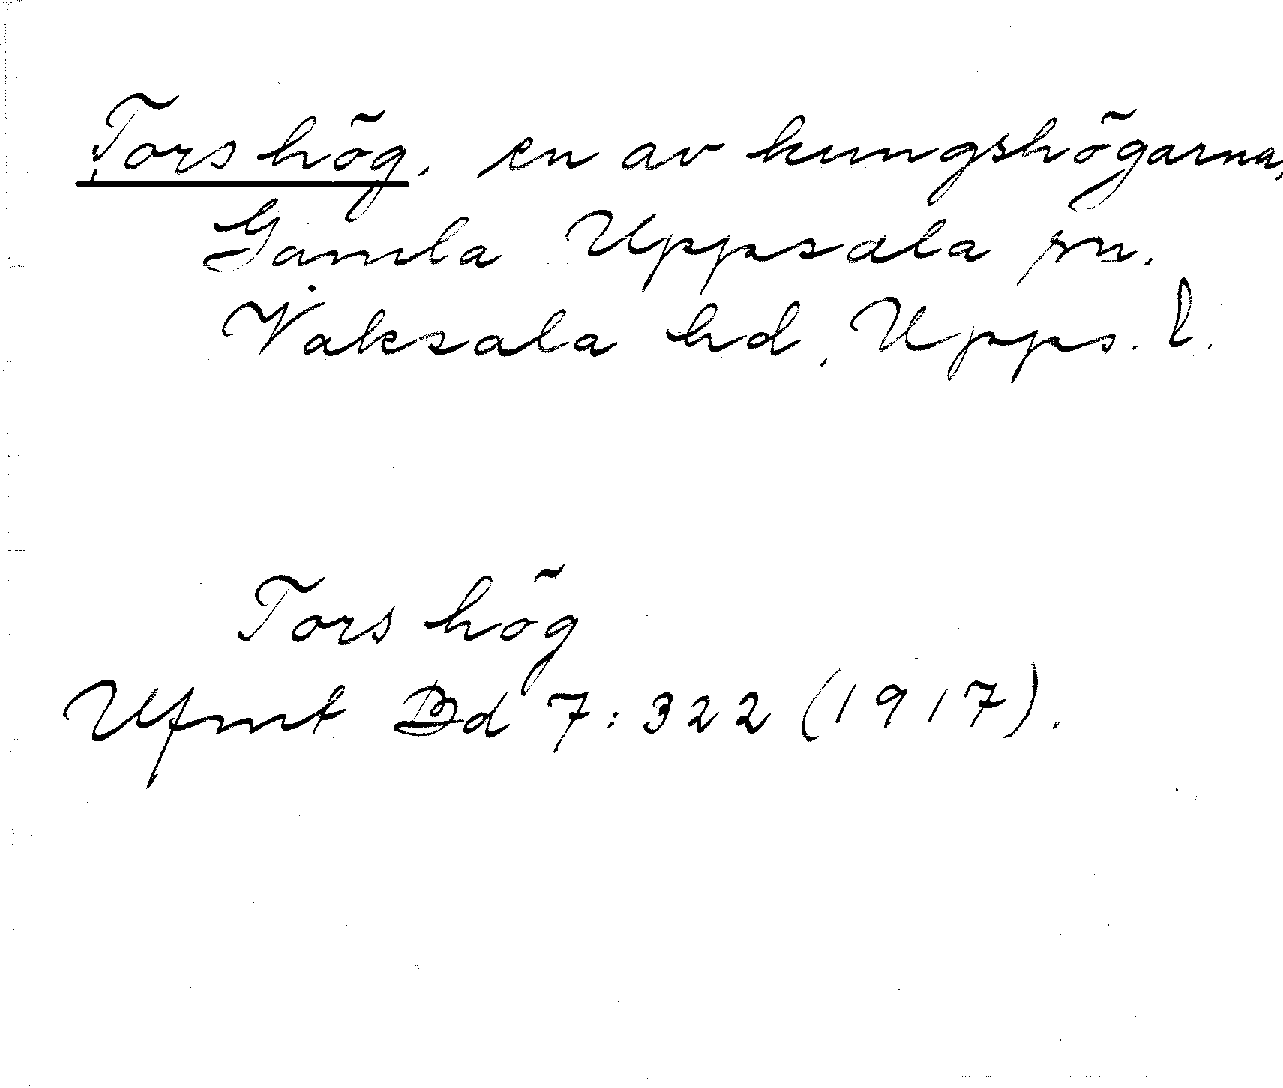 Tors hög, en av kungshögarna,
Gamla Uppsala sn.
Vaksala hd, Upps. l.
Tors hög
Ufmt Bd 7:322 (1917).